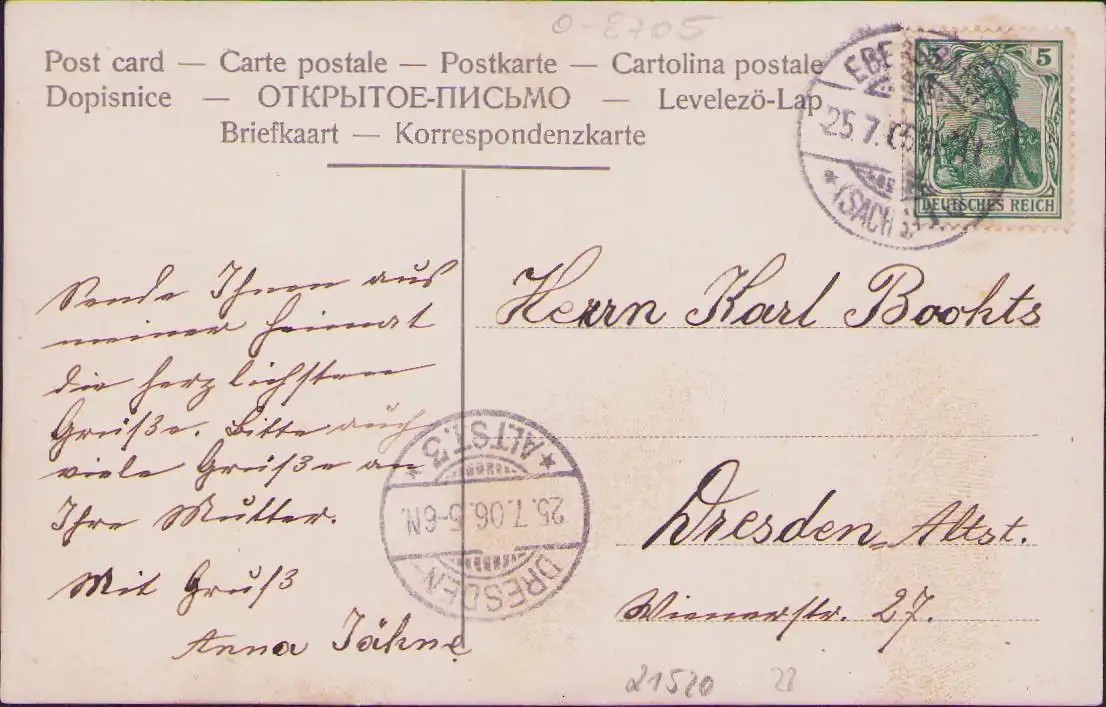 0-8705
Post card — Carte postale — Postkarte — Cartolina postale
Dopisnice — ОТКРЫТОЕ-ПИСЬМО — Levelező-Lap
Briefkaart — Korrespondenzkarte
5
DEUTSCHES REICH
25.7.
(SACHSEN)
Sende Ihnen aus
meiner Heimat
die herzlichsten
Grüße. Bitte auch
viele Grüße an
Ihre Mutter.
Mit Gruß
Anna Jähne
Herrn Karl Bookts
Dresden-Altst.
Wienerstr. 27.
DRESDEN-
25.7.06.5-6N.
* ALTST.3 *
21520
22